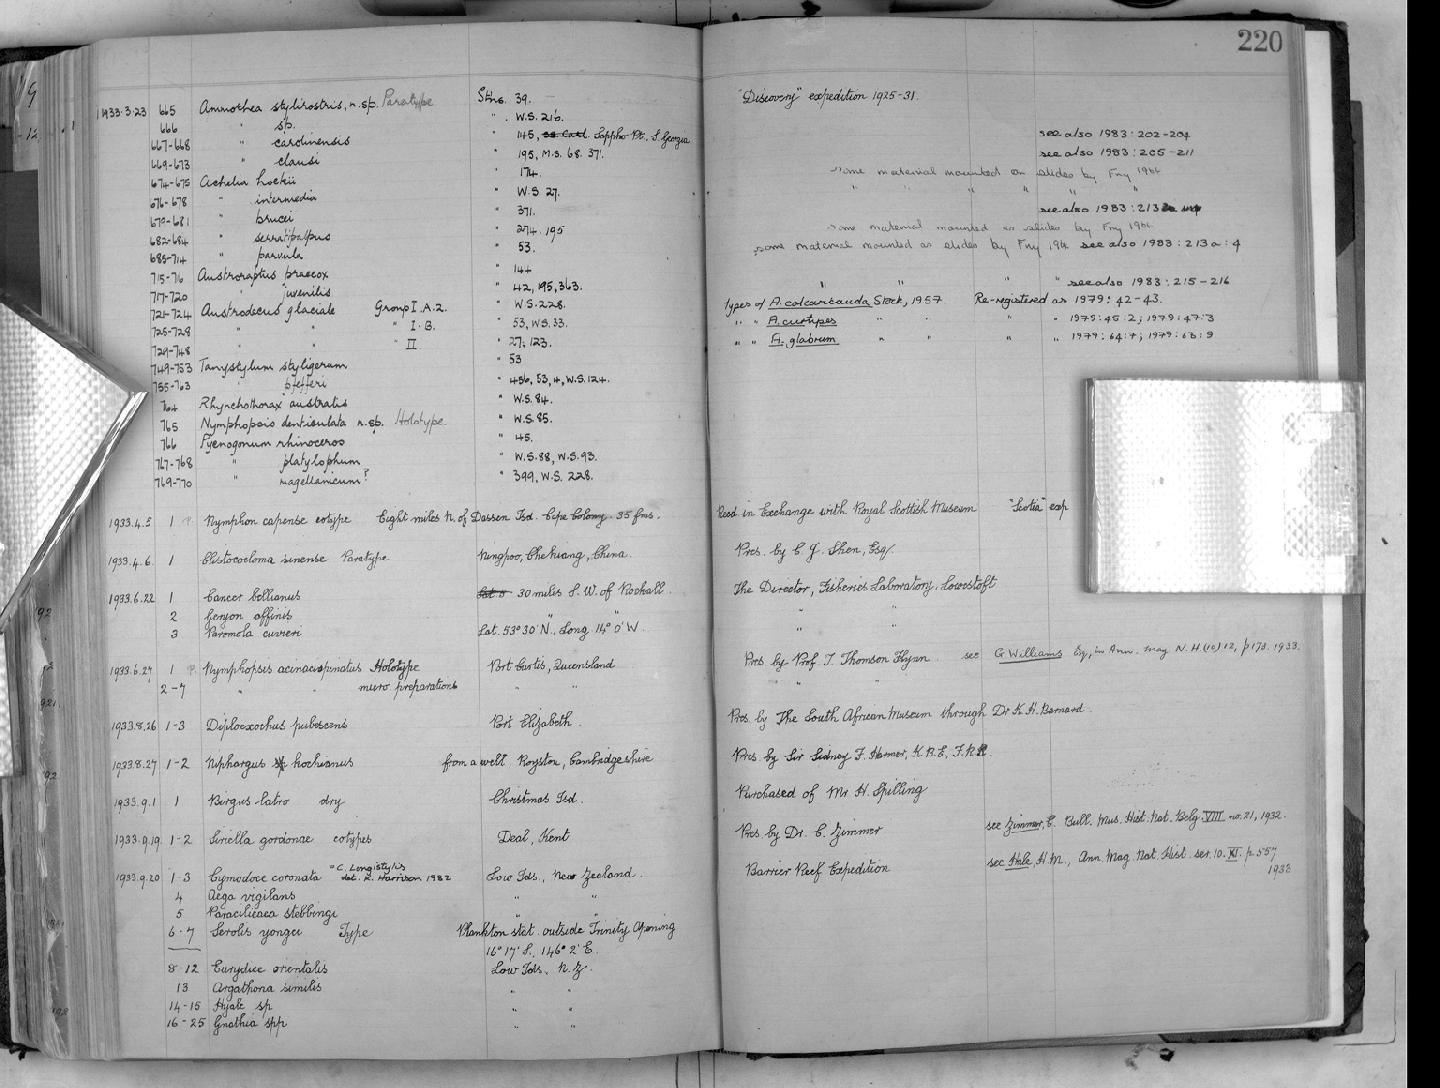 220
1933.3.23 665 Ammothea stylirostris, n.sp. Paratype Stns. 39. "Discovery" expedition 1925-31.
666 " sp. " W.S. 216.
667-668 " carolinensis " 145, Sappho Pt. S. Georgia see also 1983:202-204
669-673 " clausi " 195, M.S. 68. 37. see also 1983:205-211
674-675 Achelia hoekii " 174. some material mounted on slides by Fry 1964
676-678 " intermedia " W.S. 27. " " " " " "
679-681 " brucei " 371. see also 1983:213
682-684 " serratipalpus " 274. 195 some material mounted on slides by Fry 1964
685-714 " parvula " 53. some material mounted as slides by Fry, 1964 see also 1983:213a:4
715-716 Austroraptus praecox " 144
717-720 " juvenilis " 42, 195, 363. " " see also 1983:215-216
721-724 Austrodecus glaciale Group I.A.2. " W.S. 228. types of A. calcaricauda Stock, 1957 Re-registered as 1979:42-43.
725-728 " " " I.B. " 53, W.S. 33. " " A. curtipes " " " " 1979:45:2; 1979:47:3
729-748 " " " II " 27, 123. " " A. glabrum " " " " 1979:64:7; 1979:63:9
749-753 Tanystylum styligerum " 53
755-763 " pfefferi " 456, 53, 4, W.S. 124.
764 Rhynchothorax australis " W.S. 84.
765 Nymphopsis denticulata n.sp. Holotype " W.S. 85.
766 Pycnogonum rhinoceros " 45.
767-768 " platylophum " W.S. 88, W.S. 93.
769-70 " magellanicum? " 399, W.S. 228.
1933.4.5 1 Nymphon capense cotype Eight miles N. of Dassen Isd. Cape Colony. 35 fms. Recd in Exchange with Royal Scottish Museum "Scotia" exp
1933.4.6. 1 Clistocoeloma sinense Paratype Ningpoo, Chekiang, China. Pres. by C. J. Shen, Esq.
1933.6.22 1 Cancer bellianus 30 miles S.W. of Rockall. The Director, Fisheries Laboratory, Lowestoft
2 Geryon affinis " " " "
3 Paromola cuvieri Lat. 53° 30' N. Long. 14° 0' W. " "
1933.6.27 1 Nymphopsis acinacispinatus Holotype Port Curtis, Queensland Pres by Prof. T. Thomson Flynn see G. Williams Esq, in Ann. Mag N.H. (10) 12, p 173. 1933.
2-7 " " micro preparations " " " "
1933.8.26 1-3 Diploexochus pubescens Port Elizabeth. Pres. by The South African Museum through Dr K. H. Barnard.
1933.8.27 1-2 Niphargus kochianus from a well Royston, Cambridgeshire Pres. by Sir Sidney F. Harmer, K.B.E., F.R.S.
1933.9.1 1 Birgus latro dry Christmas Isd. Purchased of Mr H. Spilling
1933.9.19. 1-2 Siriella gordonae cotypes Deal, Kent Pres by Dr. C. Zimmer see Zimmer, C. Bull. Mus. Hist. Nat. Belg. VIII no. 21, 1932.
1933.9.20 1-3 Cymodoce coronata "C. Longistylis Low Ids., New Zealand. Barrier Reef Expedition see Hale, H.M., Ann. Mag. Nat. Hist. ser. 10. XI. p 557
det. K. Harrison 1982 1933
4 Aega vigilans " "
5 Paracilicaea stebbingi " "
6-7 Serolis yongei Type Plankton stat. outside Trinity Opening
16° 17' S., 146° 2' E.
8-12 Eurydice orientalis Low Ids., N.Z.
13 Argathona similis " "
14-15 Hyale sp " "
16-25 Gnathia spp " "